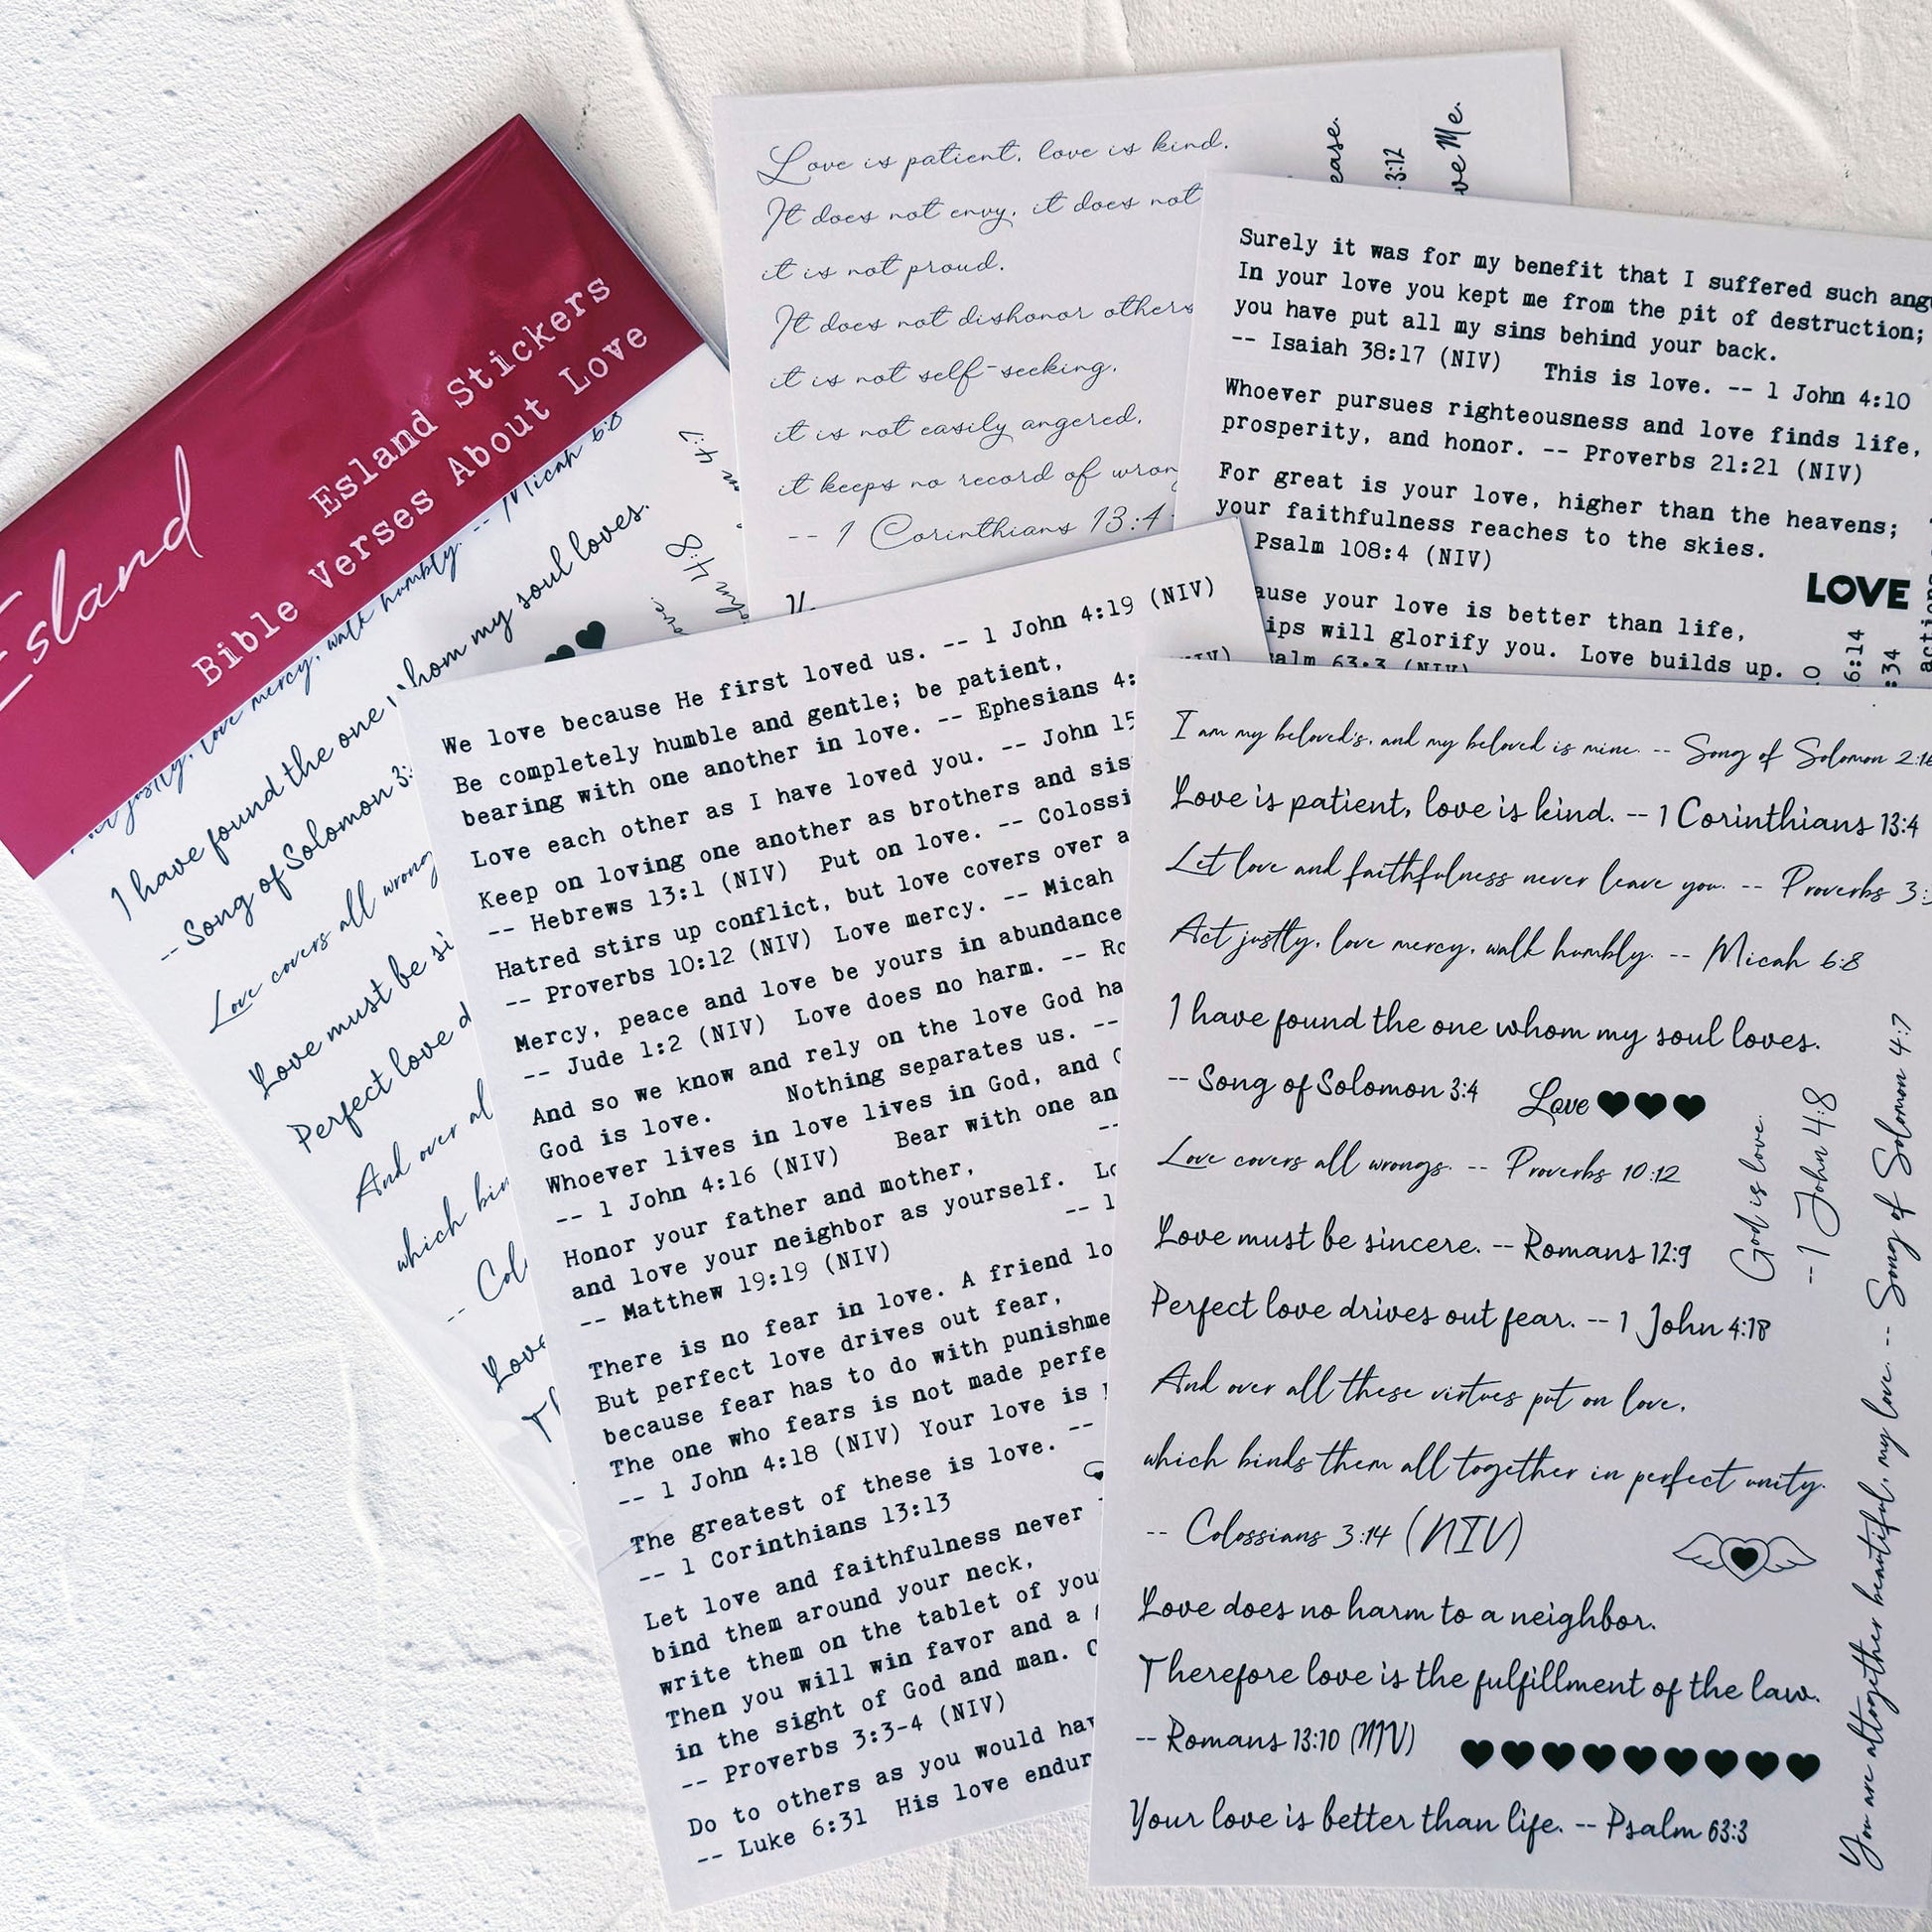 Esland
Esland Stickers
Bible Verses About Love
Act justly, love mercy, walk humbly. -- Micah 6:8
I have found the one whom my soul loves.
-- Song of Solomon 3:
Love covers all wrong
Love must be si
Perfect love d
And over al
which bin
-- Col
Love
Th
Love is patient, love is kind.
It does not envy, it does not
it is not proud.
It does not dishonor others
it is not self-seeking,
it is not easily angered,
it keeps no record of wron
-- 1 Corinthians 13:4
ease.
3:12
ve Me.
Surely it was for my benefit that I suffered such ang
In your love you kept me from the pit of destruction;
you have put all my sins behind your back.
-- Isaiah 38:17 (NIV) This is love. -- 1 John 4:10
Whoever pursues righteousness and love finds life,
prosperity, and honor. -- Proverbs 21:21 (NIV)
For great is your love, higher than the heavens;
your faithfulness reaches to the skies.
Psalm 108:4 (NIV)
ause your love is better than life,
ips will glorify you. Love builds up.
salm 63:3 (NIV)
LOVE
6:14
:34
actions
We love because He first loved us. -- 1 John 4:19 (NIV)
Be completely humble and gentle; be patient,
bearing with one another in love. -- Ephesians 4:
Love each other as I have loved you. -- John 15
Keep on loving one another as brothers and sis
-- Hebrews 13:1 (NIV) Put on love. -- Colossi
Hatred stirs up conflict, but love covers over a
-- Proverbs 10:12 (NIV) Love mercy. -- Micah
Mercy, peace and love be yours in abundance
-- Jude 1:2 (NIV) Love does no harm. -- Ro
And so we know and rely on the love God ha
God is love. Nothing separates us. --
Whoever lives in love lives in God, and G
-- 1 John 4:16 (NIV) Bear with one an
Honor your father and mother, --
and love your neighbor as yourself. Lo
-- Matthew 19:19 (NIV) -- 1
There is no fear in love. A friend lo
But perfect love drives out fear,
because fear has to do with punishme
The one who fears is not made perfe
-- 1 John 4:18 (NIV) Your love is
The greatest of these is love. --
-- 1 Corinthians 13:13
Let love and faithfulness never
bind them around your neck,
write them on the tablet of you
Then you will win favor and a
in the sight of God and man.
-- Proverbs 3:3-4 (NIV)
Do to others as you would hav
-- Luke 6:31 His love endur
I am my beloved's, and my beloved is mine. -- Song of Solomon 2:16
Love is patient, love is kind. -- 1 Corinthians 13:4
Let love and faithfulness never leave you. -- Proverbs 3:3
Act justly, love mercy, walk humbly. -- Micah 6:8
I have found the one whom my soul loves.
-- Song of Solomon 3:4 Love
Love covers all wrongs. -- Proverbs 10:12
Love must be sincere. -- Romans 12:9
Perfect love drives out fear. -- 1 John 4:18
And over all these virtues put on love,
which binds them all together in perfect unity.
-- Colossians 3:14 (NIV)
Love does no harm to a neighbor.
Therefore love is the fulfillment of the law.
-- Romans 13:10 (NIV)
Your love is better than life. -- Psalm 63:3
God is love.
-- 1 John 4:8
You are altogether beautiful, my love -- Song of Solomon 4:7